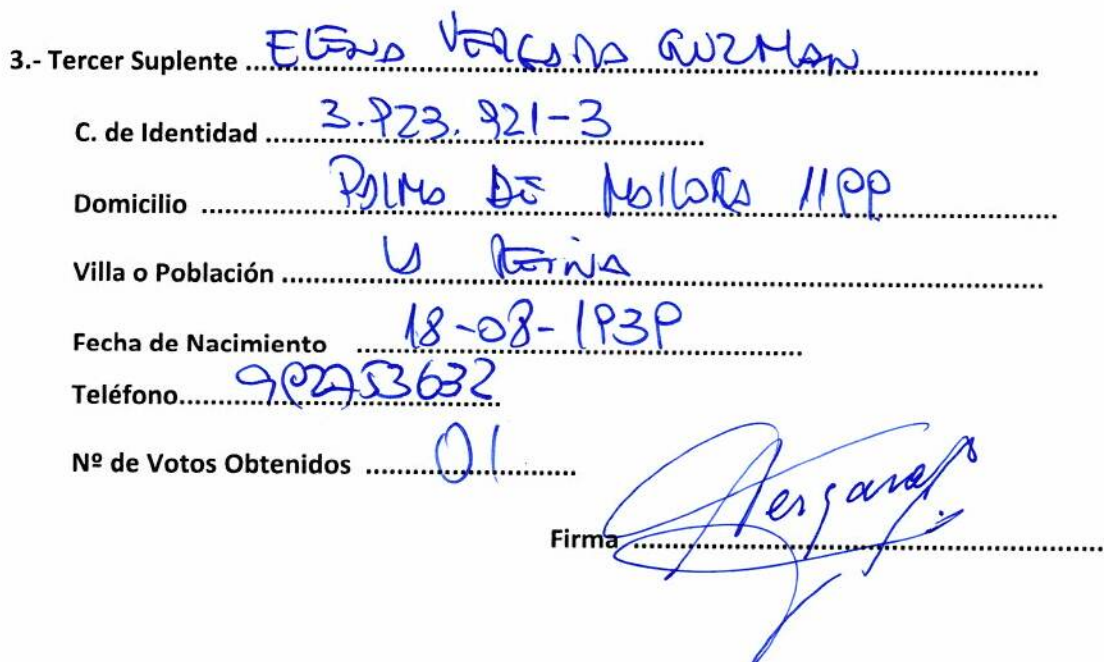 3.- Tercer Suplente ELENA VERGARA GUZMAN
C. de Identidad 3.923.921-3
Domicilio PALMA DE MALLORCA 1199
Villa o Población LA REINA
Fecha de Nacimiento 18-08-1939
Teléfono
Nº de Votos Obtenidos 01
Firma Vergara